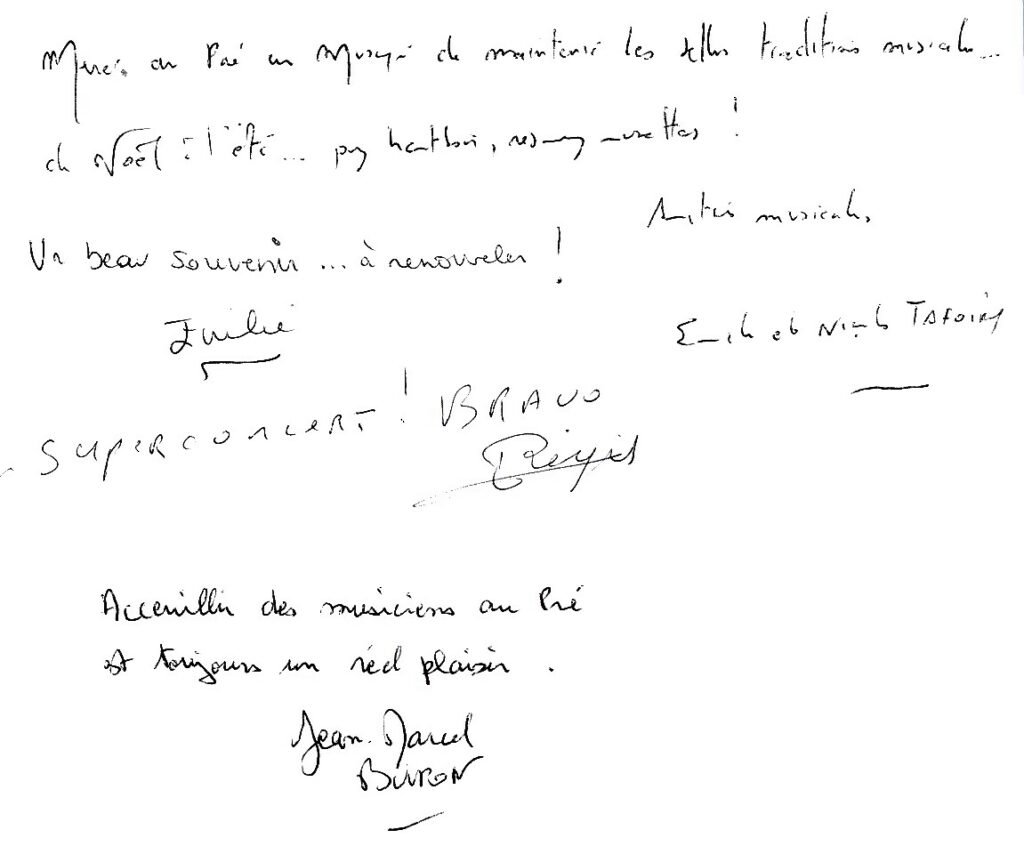 Merci au Pré en Musique de maintenir les belles traditions musicales...
de Noël à l'été... puy hautbois, musettes !
Amitiés musicales,
Un beau souvenir... à renouveler !
Emilie
et
SUPER CONCERT ! BRAVO
Régis
Accueillir des musiciens au Pré
est toujours un réel plaisir.
Jean-Marcel
BURON